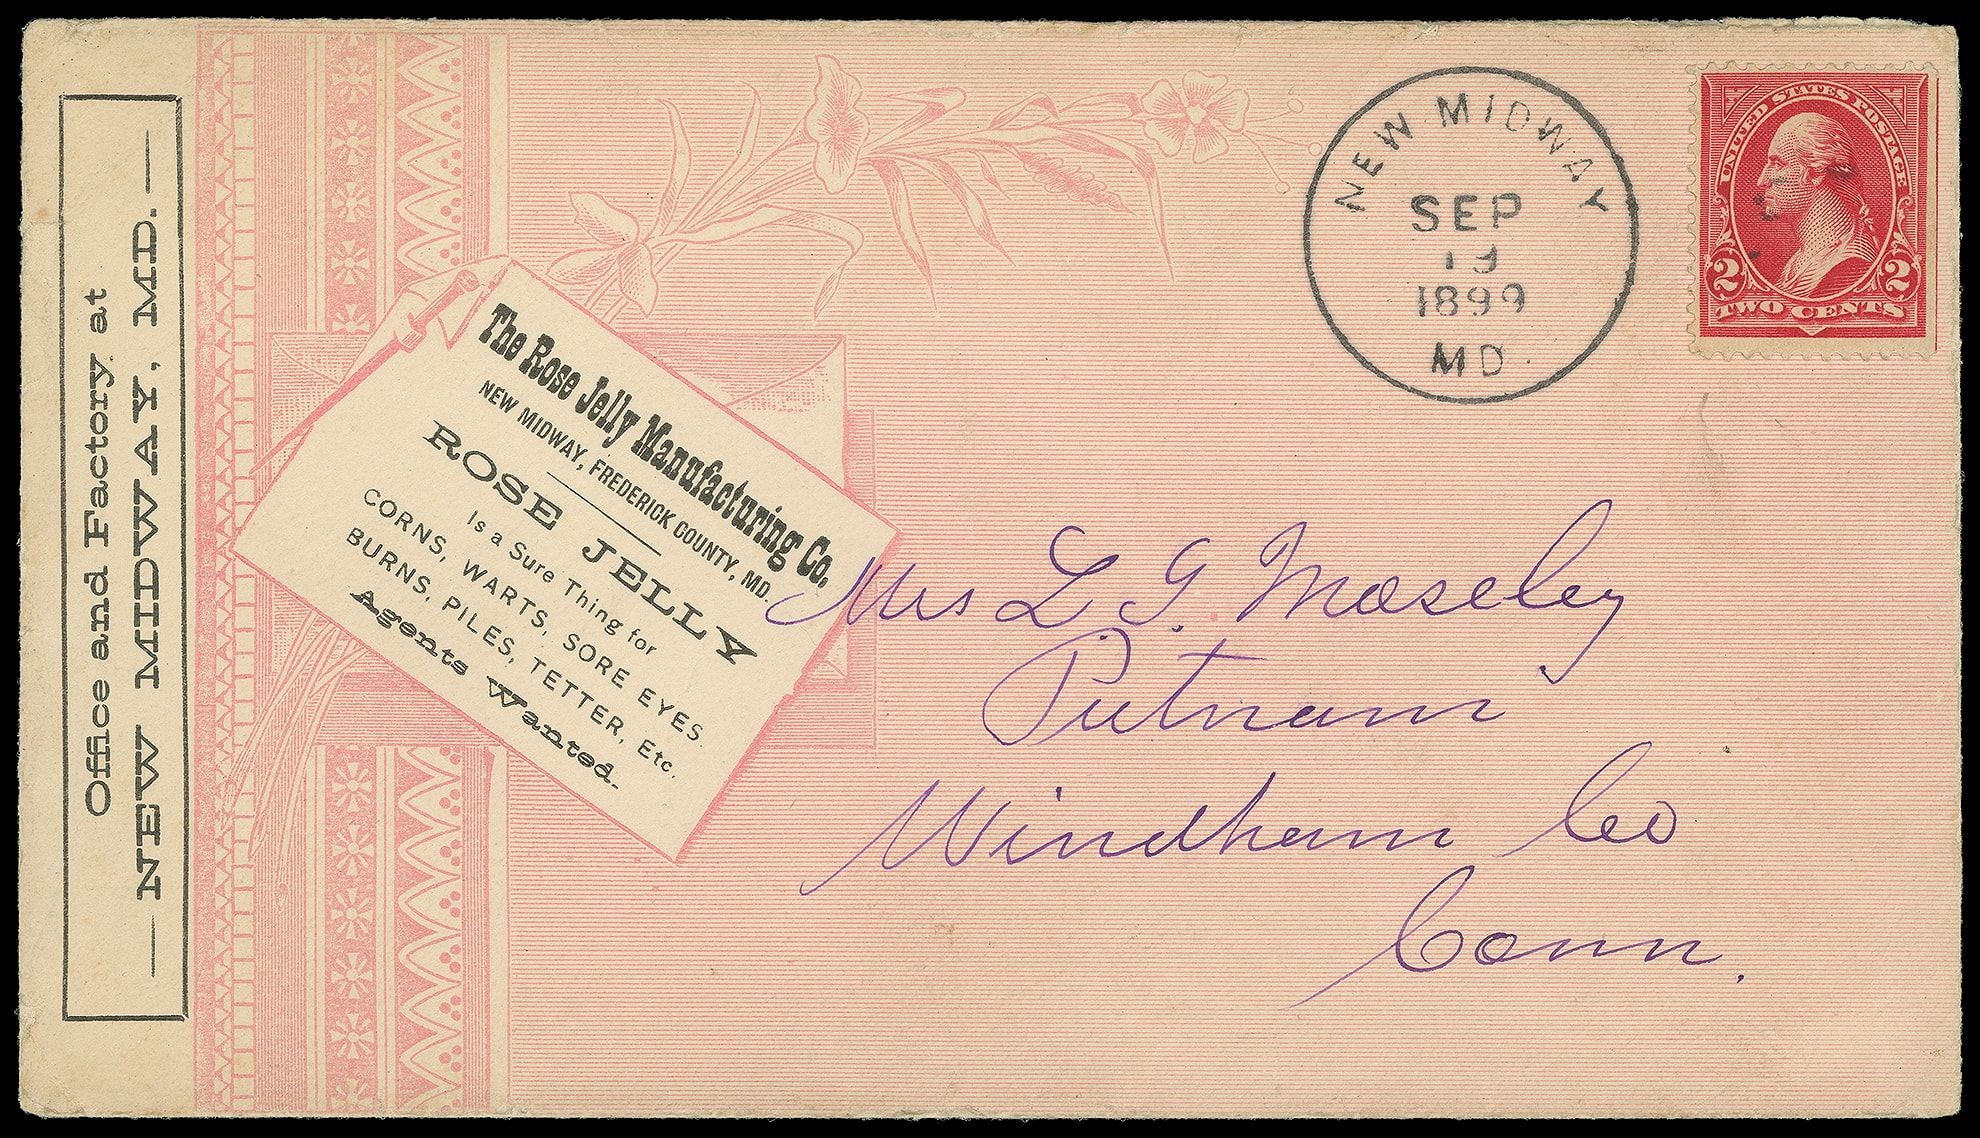 Office and Factory at
— NEW MIDWAY, MD. —
The Rose Jelly Manufacturing Co.
NEW MIDWAY, FREDERICK COUNTY, MD.
ROSE JELLY
Is a Sure Thing for
CORNS, WARTS, SORE EYES.
BURNS, PILES, TETTER, Etc.
Agents Wanted.
NEW MIDWAY
SEP
19
1899
MD.
UNITED STATES POSTAGE
2 2
TWO CENTS
Mrs L. G. Moseley
Putnam
Windham Co
Conn.